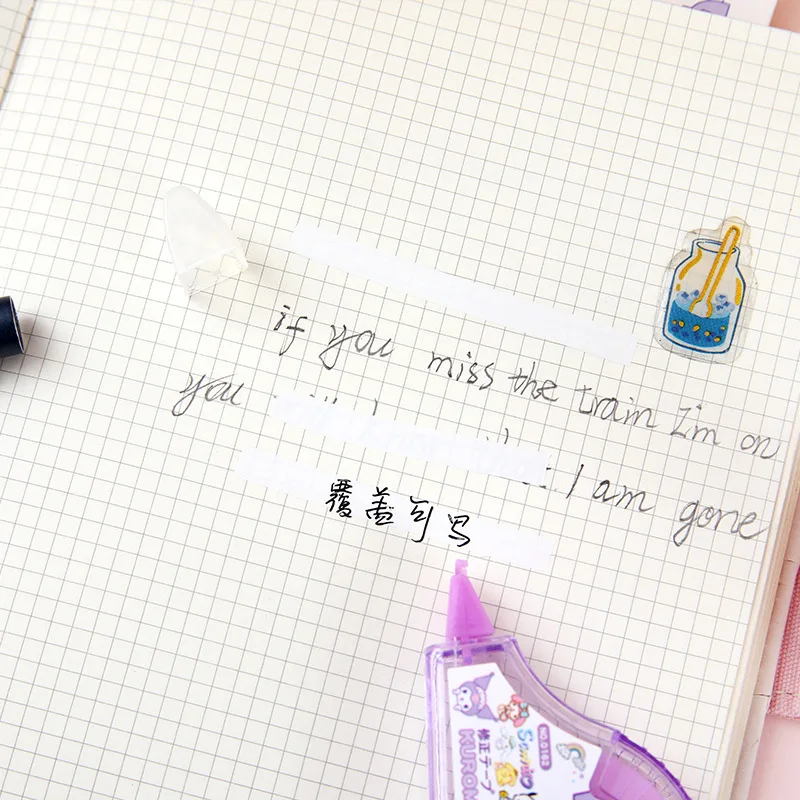 if you miss the train I'm on
you I am gone
覆盖可写
NO.0103
Sanrio
修正テープ
KUROM